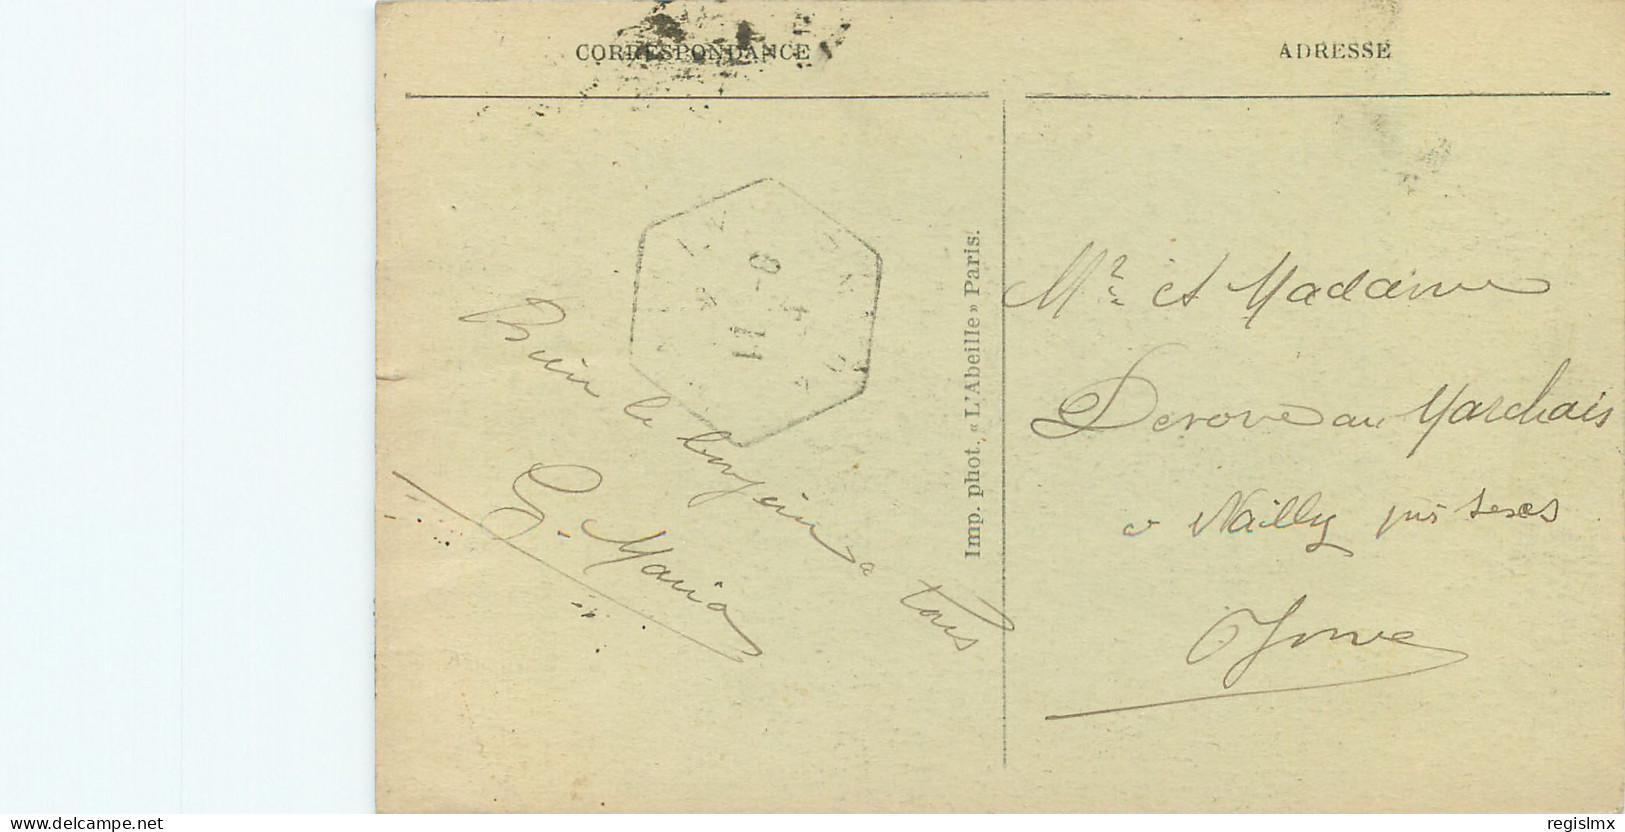 CORRESPONDANCE
ADRESSE
Bien le
à tous
G. Maria
Imp. phot. « L'Abeille » Paris.
Mr et Madame
Derove au Marchais
a Nailly près sens
Yonne
8-4
11
delcampe.net
regislmx